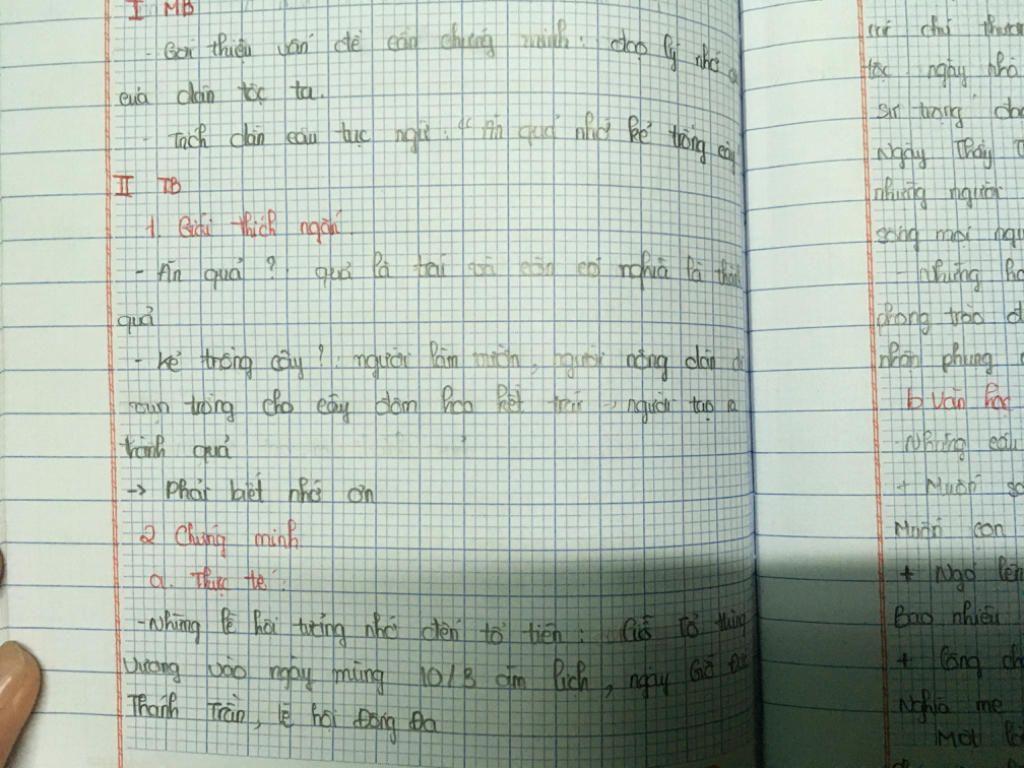 I MB
- Giới thiệu vấn đề cần chứng minh: đạo lý nhớ
của dân tộc ta.
- Trích dẫn câu tục ngữ: "Ăn quả nhớ kẻ trồng cây
II TB
1. Giải thích ngắn
- Ăn quả? quả là trái và còn có nghĩa là thành
quả
- Kẻ trồng cây?: người làm vườn, người nông dân
vun trồng cho cây đơm hoa kết trái → người tạo ra
thành quả
-> Phải biết nhớ ơn
2 Chứng minh
a. Thực tế:
- Những lễ hội tưởng nhớ đến tổ tiên: Giỗ Tổ Hùng
Vương vào ngày mùng 10/3 âm lịch, ngày Giỗ Đức
Thánh Trần, lễ hội Đống Đa
tộc ngày nhà
sư trọng
Ngày Thầy
những người
sống mọi
- những
phong trào
nhân phụng
b Văn học
- Những câu
+ Muốn
Muốn con
+ Ngó lên
Bao nhiêu
+ Công
Nghĩa mẹ
Một